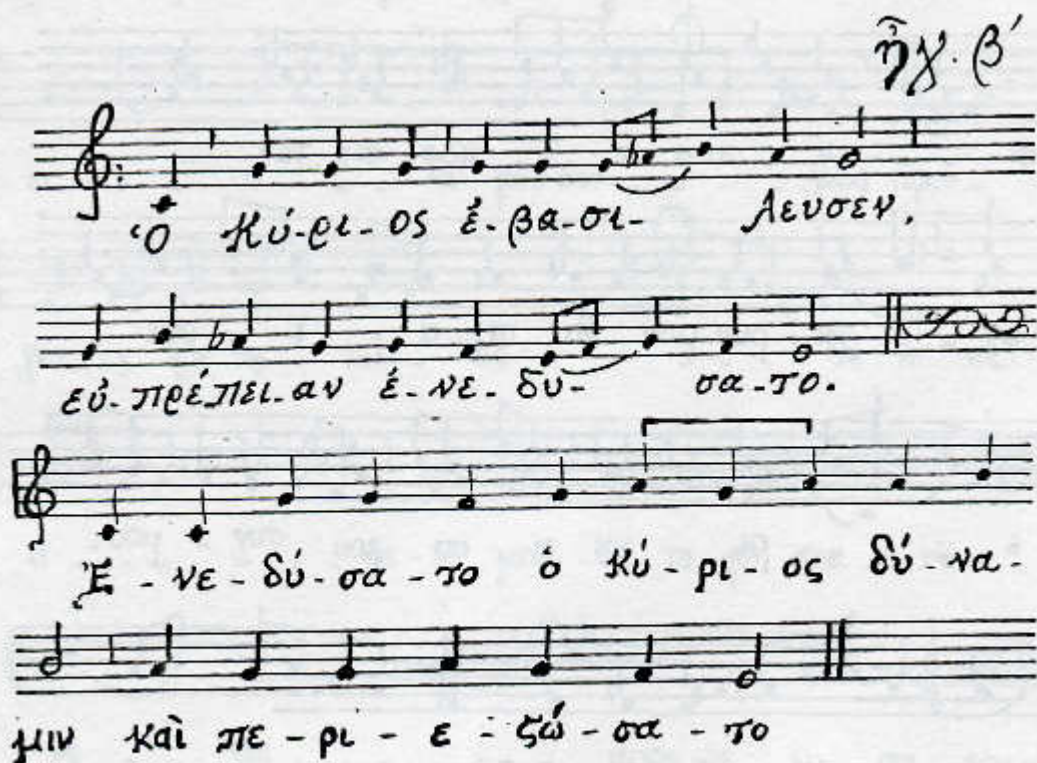 ἦχ. β′
Ὁ Κύ-ρι-ος ἐ-βα-σι- λευσεν.
εὐ-πρέ-πει-αν ἐ-νε-δύ- σα-το.
Ἐ-νε-δύ-σα-το ὁ Κύ-ρι-ος δύ-να-
μιν καὶ πε-ρι-ε-ζώ-σα-το